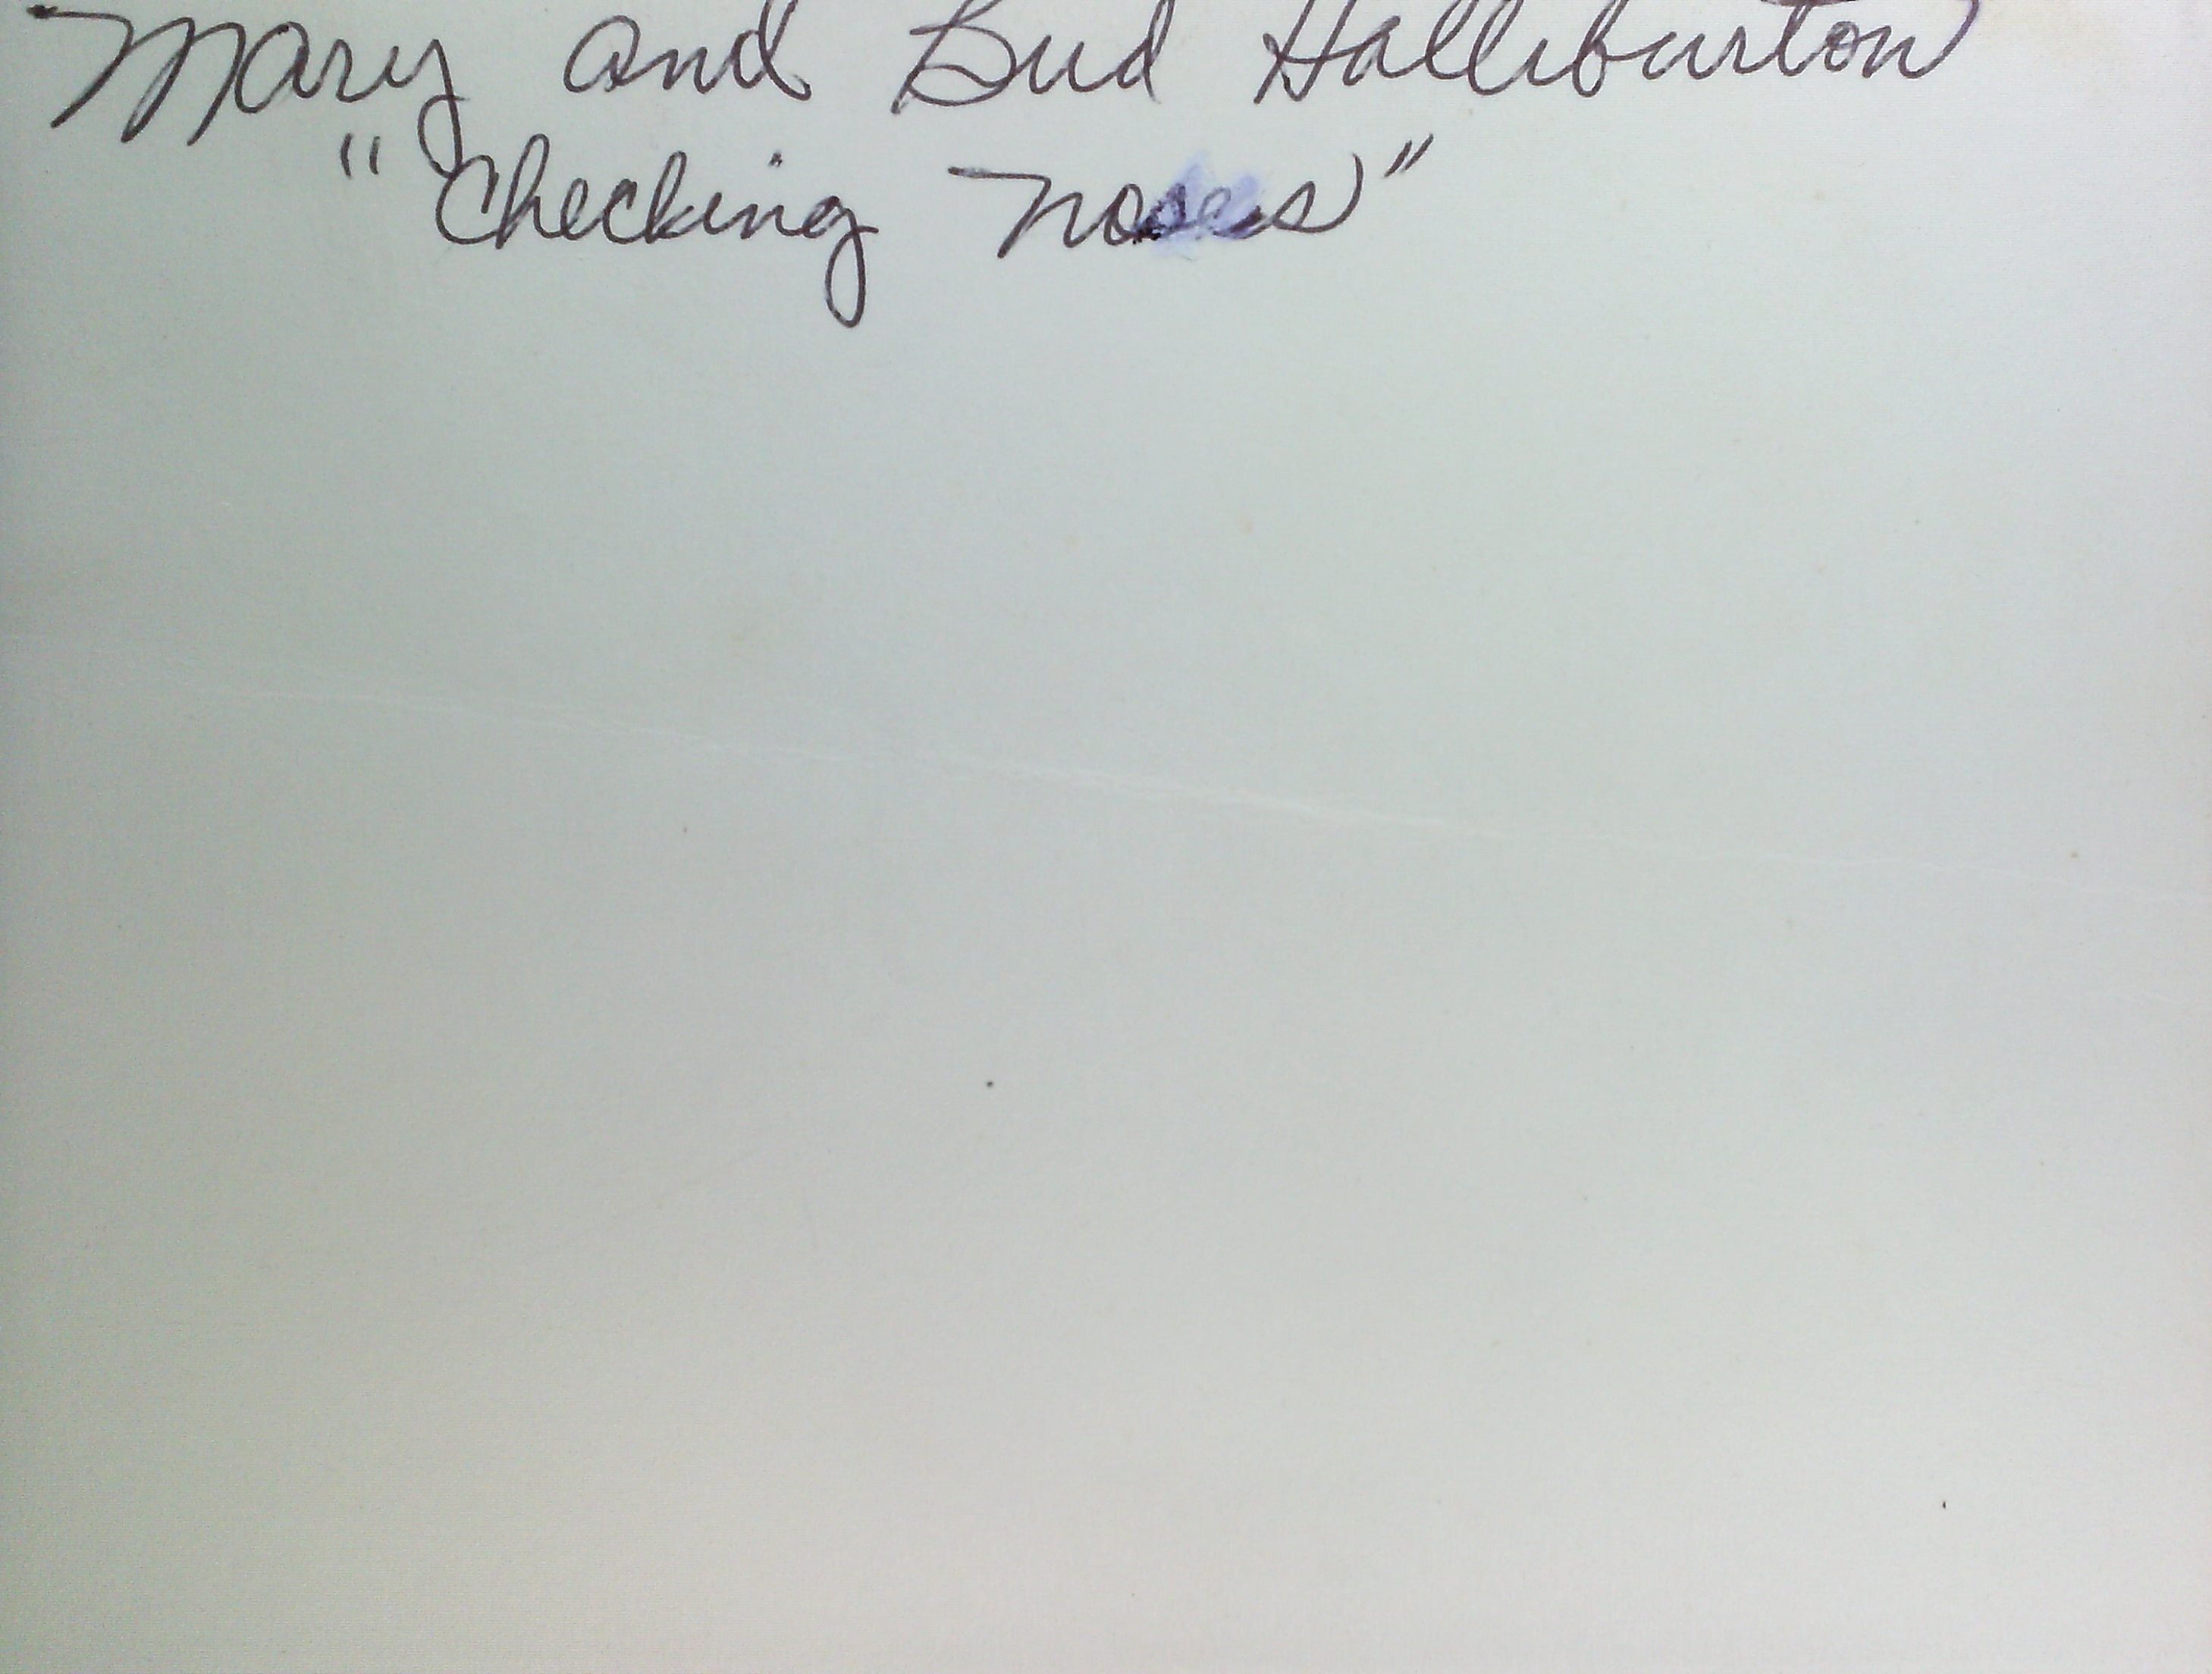 Mary and Bud Halliburton
"Checking Noses"